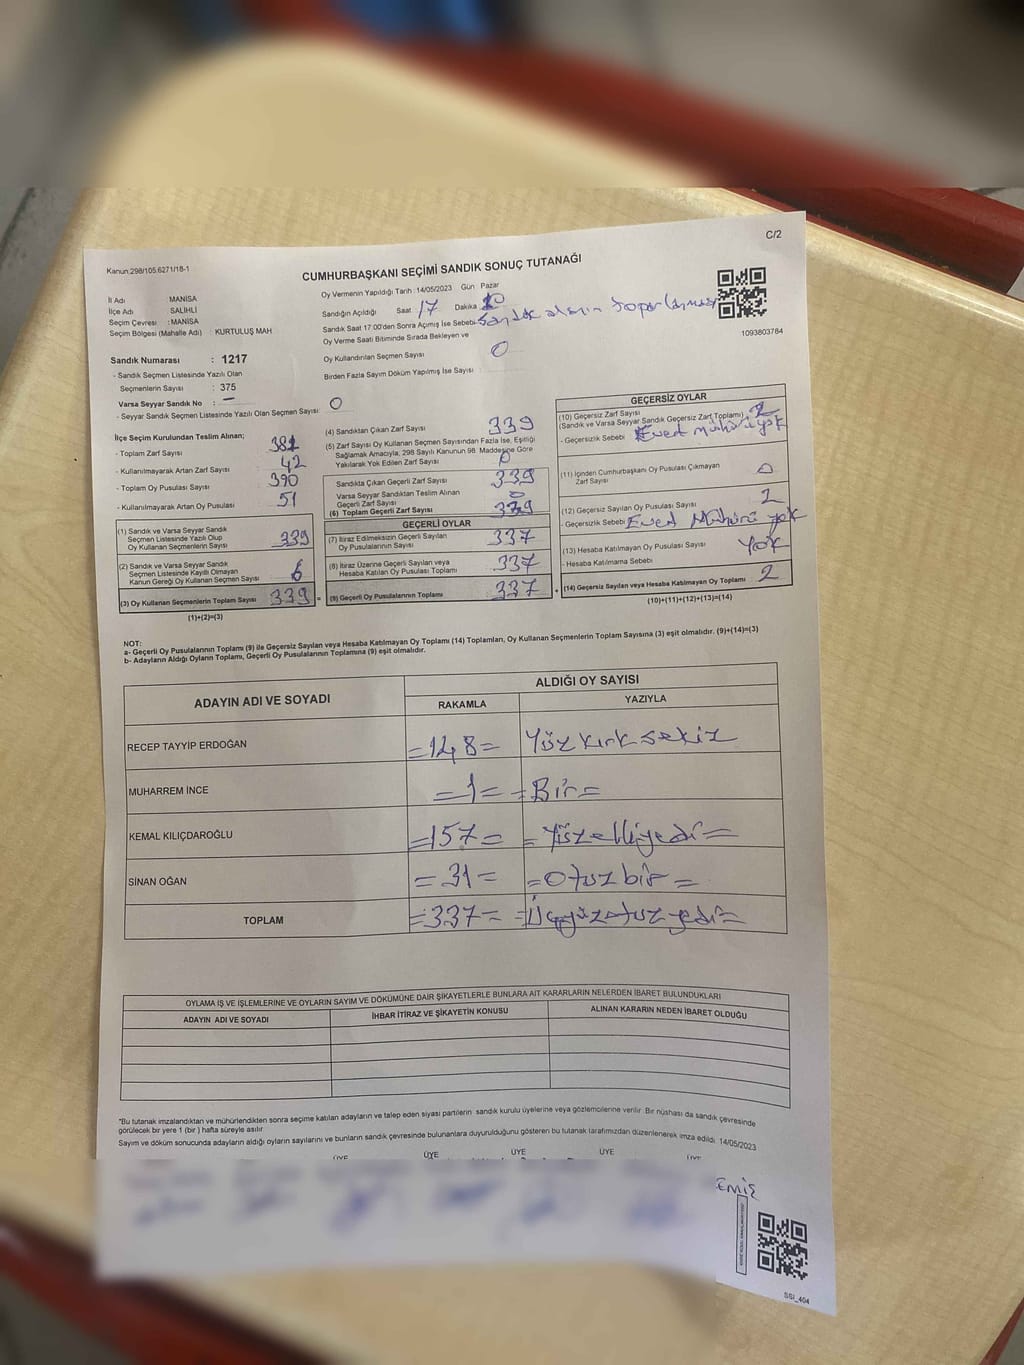 C/2
Kanun:298/105.6271/18-1
CUMHURBAŞKANI SEÇİMİ SANDIK SONUÇ TUTANAĞI
İl Adı MANİSA
İlçe Adı SALİHLİ
Seçim Çevresi : MANİSA
Seçim Bölgesi (Mahalle Adı) : KURTULUŞ MAH
Oy Vermenin Yapıldığı Tarih :14/05/2023 Gün Pazar
Sandığın Açıldığı Saat 17 Dakika
Sandık Saat 17:00'den Sonra Açımış İse Sebebi
Oy Verme Saati Bitiminde Sırada Bekleyen ve
Oy Kullandırılan Seçmen Sayısı 0
Birden Fazla Sayım Döküm Yapılmış İse Sayısı :
1093803784
Sandık Numarası : 1217
- Sandık Seçmen Listesinde Yazılı Olan
Seçmenlerin Sayısı : 375
Varsa Seyyar Sandık No : -
- Seyyar Sandık Seçmen Listesinde Yazılı Olan Seçmen Sayısı: 0
İlçe Seçim Kurulundan Teslim Alınan;
- Toplam Zarf Sayısı 381
- Kullanılmayarak Artan Zarf Sayısı 42
- Toplam Oy Pusulası Sayısı 390
- Kullanılmayarak Artan Oy Pusulası 51
(1) Sandık ve Varsa Seyyar Sandık
Seçmen Listesinde Yazılı Olup
Oy Kullanan Seçmenlerin Sayısı 339
(2) Sandık ve Varsa Seyyar Sandık
Seçmen Listesinde Kayıtlı Olmayan
Kanun Gereği Oy Kullanan Seçmen Sayısı
(3) Oy Kullanan Seçmenlerin Toplam Sayısı 339 =
(1)+(2)=(3)
(4) Sandıktan Çıkan Zarf Sayısı 339
(5) Zarf Sayısı Oy Kullanan Seçmen Sayısından Fazla İse, Eşitliği
Sağlamak Amacıyla, 298 Sayılı Kanunun 98. Maddesine Göre
Yakılarak Yok Edilen Zarf Sayısı 0
Sandıkta Çıkan Geçerli Zarf Sayısı 339
Varsa Seyyar Sandıktan Teslim Alınan
Geçerli Zarf Sayısı 0
(6) Toplam Geçerli Zarf Sayısı 339
GEÇERLİ OYLAR
(7) İtiraz Edilmeksizin Geçerli Sayılan
Oy Pusulalarının Sayısı 337
(8) İtiraz Üzerine Geçerli Sayılan veya
Hesaba Katılan Oy Pusulası Toplamı 337
(9) Geçerli Oy Pusulalarının Toplamı 337 +
GEÇERSİZ OYLAR
(10) Geçersiz Zarf Sayısı
(Sandık ve Varsa Seyyar Sandık Geçersiz Zarf Toplamı) 2
- Geçersizlik Sebebi Evet mühürü yok
(11) İçinden Cumhurbaşkanı Oy Pusulası Çıkmayan
Zarf Sayısı 0
(12) Geçersiz Sayılan Oy Pusulası Sayısı 2
- Geçersizlik Sebebi Evet Mühürü yok
(13) Hesaba Katılmayan Oy Pusulası Sayısı Yok
- Hesaba Katılmama Sebebi
(14) Geçersiz Sayılan veya Hesaba Katılmayan Oy Toplamı 2
(10)+(11)+(12)+(13)=(14)
NOT:
a- Geçerli Oy Pusulalarının Toplamı (9) ile Geçersiz Sayılan veya Hesaba Katılmayan Oy Toplamı (14) Toplamları, Oy Kullanan Seçmenlerin Toplam Sayısına (3) eşit olmalıdır. (9)+(14)=(3)
b- Adayların Aldığı Oyların Toplamı, Geçerli Oy Pusulalarının Toplamına (9) eşit olmalıdır.
ADAYIN ADI VE SOYADI ALDIĞI OY SAYISI
RAKAMLA YAZIYLA
RECEP TAYYİP ERDOĞAN =148= Yüz kırk sekiz
MUHARREM İNCE =1= =Bir=
KEMAL KILIÇDAROĞLU =157= =Yüzelliyedi=
SİNAN OĞAN =31= =Otuz bir=
TOPLAM =337= =Üçyüzotuz yedi=
OYLAMA İŞ VE İŞLEMLERİNE VE OYLARIN SAYIM VE DÖKÜMÜNE DAİR ŞİKAYETLERLE BUNLARA AİT KARARLARIN NELERDEN İBARET BULUNDUKLARI
ADAYIN ADI VE SOYADI İHBAR İTİRAZ VE ŞİKAYETİN KONUSU ALINAN KARARIN NEDEN İBARET OLDUĞU
*Bu tutanak imzalandıktan ve mühürlendikten sonra seçime katılan adayların ve talep eden siyasi partilerin sandık kurulu üyelerine veya gözlemcilerine verilir. Bir nüshası da sandık çevresinde
görülecek bir yere 1 (bir ) hafta süreyle asılır
Sayım ve döküm sonucunda adayların aldığı oyların sayılarını ve bunların sandık çevresinde bulunanlara duyurulduğunu gösteren bu tutanak tarafımızdan düzenlenerek imza edildi. 14/05/2023
ÜYE ÜYE ÜYE ÜYE
EMİŞ
SSI_404